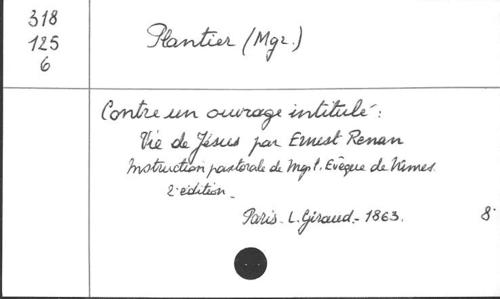 318
125
6
Plantier (Mgr.)
Contre un ouvrage intitulé :
Vie de Jésus par Ernest Renan
Instruction pastorale de Mgr l'Evêque de Nimes.
2e édition.
Paris. L. Giraud. - 1863. 8°